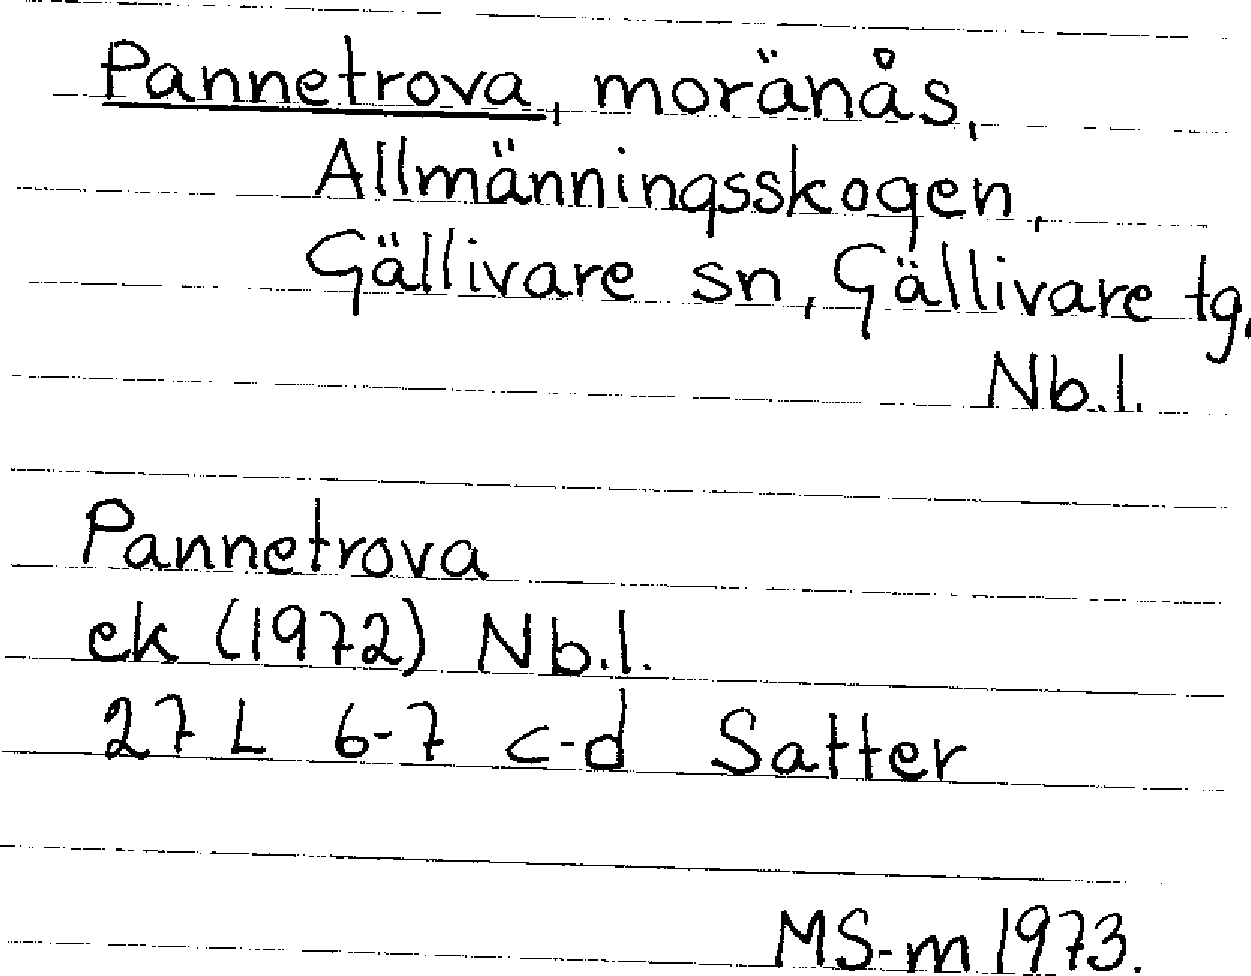 Pannetrova, moränås,
Allmänningsskogen,
Gällivare sn, Gällivare tg,
Nb.l.
Pannetrova
ek (1972) Nb.l.
27 L 6-7 c-d Satter
MS-m 1973.